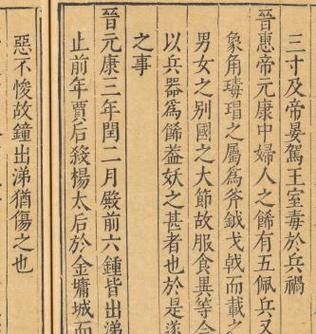 三寸及帝晏駕王室毒於兵禍
晉惠帝元康中婦人之餙有五佩兵又
象角瑇瑁之屬爲斧鉞戈戟而載
男女之别國之大節故服食異等今
以兵器爲餙葢妖之甚者也於是遂
之事
晉元康三年閏二月殿前六鍾皆出涕
止前年賈后殺楊太后於金墉城而
惡不悛故鐘出涕猶傷之也